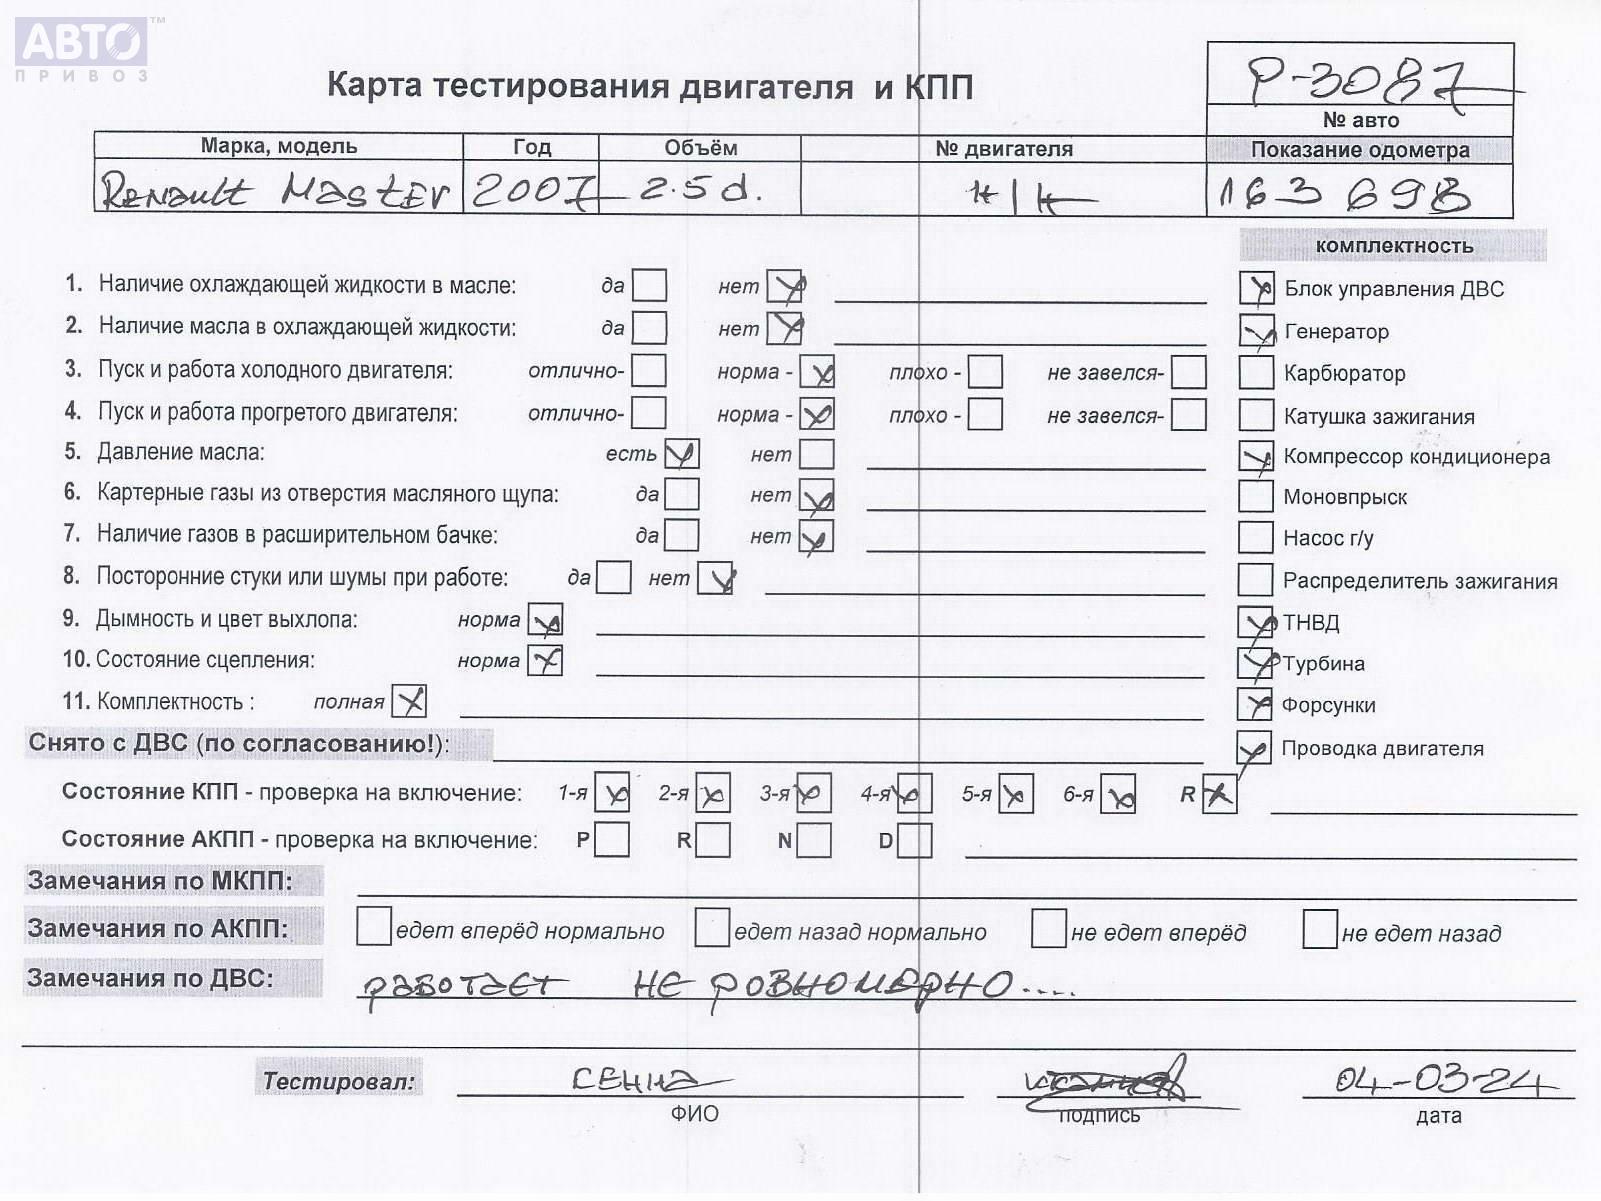 АВТО™
ПРИВОЗ
Карта тестирования двигателя и КПП
Р-3087
№ авто
Марка, модель Год Объём № двигателя Показание одометра
Renault Master 2007 2.5 d. н/н 163 698
комплектность
1. Наличие охлаждающей жидкости в масле: да нет
Блок управления ДВС
2. Наличие масла в охлаждающей жидкости: да нет
Генератор
3. Пуск и работа холодного двигателя: отлично- норма - плохо - не завелся-
Карбюратор
4. Пуск и работа прогретого двигателя: отлично- норма - плохо - не завелся-
Катушка зажигания
5. Давление масла: есть нет
Компрессор кондиционера
6. Картерные газы из отверстия масляного щупа: да нет
Моновпрыск
7. Наличие газов в расширительном бачке: да нет
Насос г/у
8. Посторонние стуки или шумы при работе: да нет
Распределитель зажигания
9. Дымность и цвет выхлопа: норма
ТНВД
10. Состояние сцепления: норма
Турбина
11. Комплектность : полная
Форсунки
Снято с ДВС (по согласованию!):
Проводка двигателя
Состояние КПП - проверка на включение: 1-я 2-я 3-я 4-я 5-я 6-я R
Состояние АКПП - проверка на включение: P R N D
Замечания по МКПП:
Замечания по АКПП: едет вперёд нормально едет назад нормально не едет вперёд не едет назад
Замечания по ДВС: работает не ровномерно....
Тестировал: СЕННА 04-03-24
ФИО подпись дата